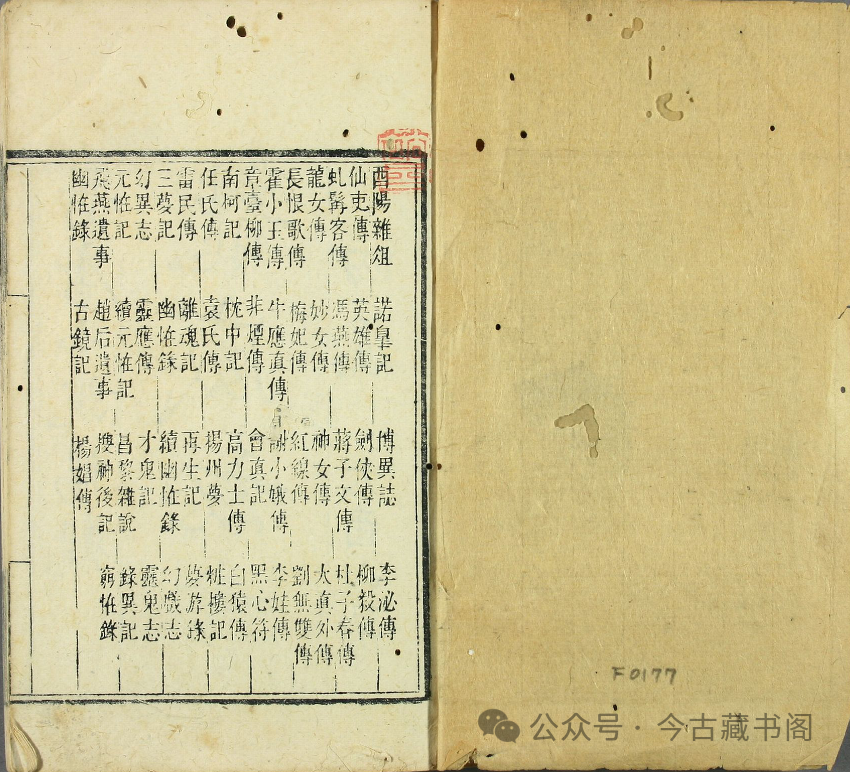 酉陽雜俎 諾皐記 博異誌 李泌傳
仙吏傳 英雄傳 劍俠傳 柳毅傳
虬髯客傳 馮燕傳 蔣子文傳 杜子春傳
龍女傳 妙女傳 神女傳 太眞外傳
長恨歌傳 梅妃傳 紅線傳 劉無雙傳
霍小玉傳 牛應眞傳 謝小娥傳 李娃傳
章臺柳傳 非煙傳 會眞記 黑心符
南柯記 枕中記 高力士傳 白猿傳
任氏傳 袁氏傳 揚州夢 粧樓記
雷民傳 離魂記 再生記 夢游錄
三夢記 幽恠錄 續幽恠錄 幻戲志
幻異志 靈應傳 才鬼記 靈鬼志
元恠記 續元恠記 昌黎雜說 錄異記
飛燕遺事 趙后遺事 搜神後記 窮恠錄
幽恠錄 古鏡記 楊娼傳
F0177
公众号 · 今古藏书阁